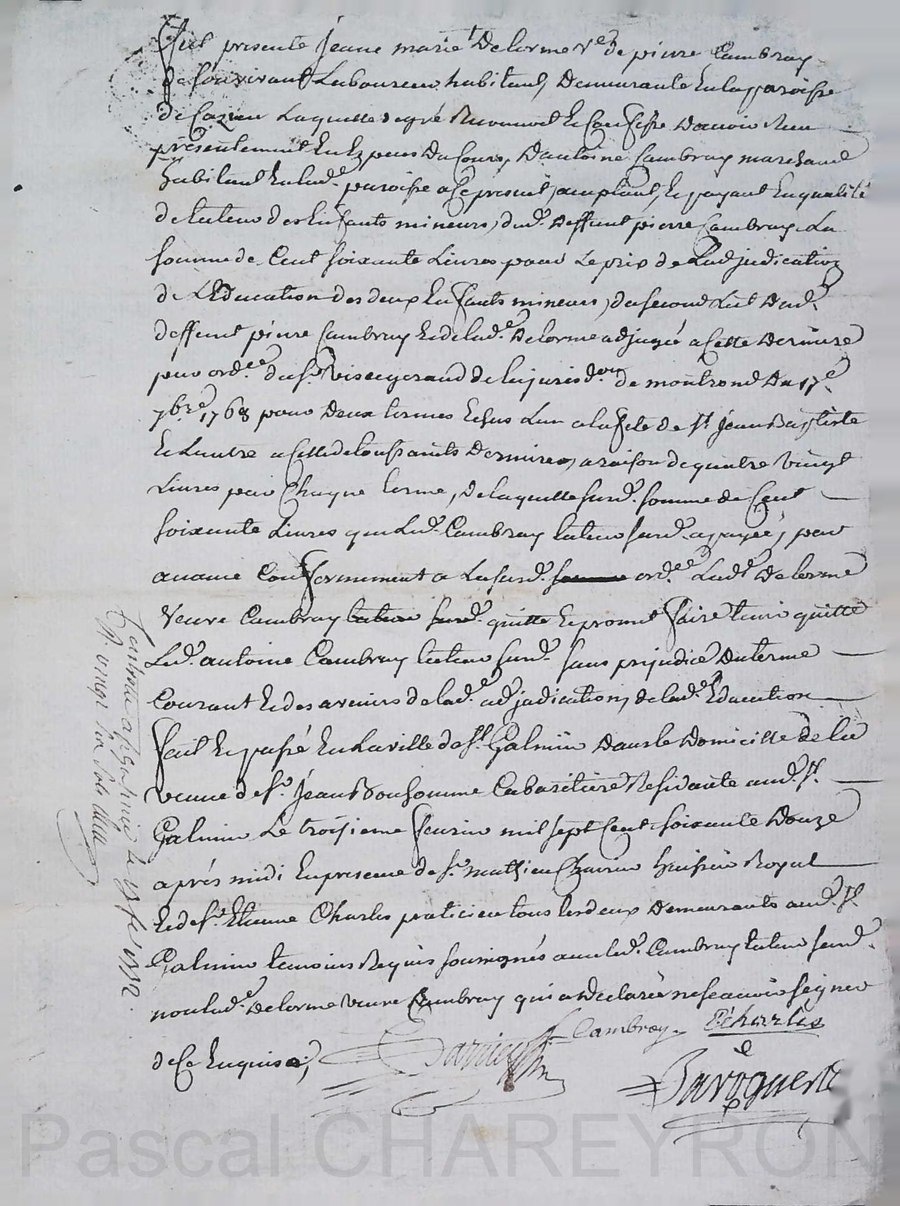 Fut presente Jeane marie Delorme ve. de pierre Cambray
de son vivant Laboureur habitant, Demeurante en la paroisse
de Cuzieu Laquelle de gré Reconnoit et Confesse D'avoir Reçu
présentement En Espèces Du Cours, D'antoine Cambray marchand
habitant En lad.e paroisse a Ce present, acceptant, et payant En qualité
de tuteur des Enfants mineurs, dud. Deffunt pierre Cambray La
somme de Cent soixante Livres pour Le prix de L'adjudication
de L'Education des deux Enfants mineurs, du second Lit Dud.
deffunt pierre Cambray Et de lad.e Delorme adjugée a Cette Derniere
par ord.ce du sr. viseegerand de la jurisd.on de montrond Du 17.e
7bre. 1768 pour Deux termes Echus L'un a la fete de St. Jean Baptiste
Et L'autre a Cette de toussaints Dernieres, a raison de quatre vingt
Livres pour Chaque terme, de laquelle susd. somme de Cent
soixante Livres que Led. Cambray tuteur susd. a payée, par
avance Conformement a La susd. ord.ce Lad.e Delorme
veuve Cambray quitte Et promet faire tenir quitte
Led. antoine Cambray tuteur susd. sans prejudice Du terme
Courant Et des avenirs de lad.e adjudication, de lad.e Education
fait Et passé En La ville de St. Galmier Dans le Domicille de la
veuve de sr. Jean Bonhomme Cabaretiere Residante aud. St.
Galmier Le troisieme fevrier mil sept Cent soixante Douze
après midi En presence de sr. mathieu huissier Royal
Et de sr. Etienne Charles praticien tous les deux Demeurants aud. St.
Galmier temoins Requis soussignés avec led. Cambray tuteur susd.
non lad.e Delorme veuve Cambray qui a Declaré ne sçavoir signer
de Ce Enquise,
Cambray
E charles
Laroquerie
Controllé a St Galmier le fev 1772
Pascal CHAREYRON